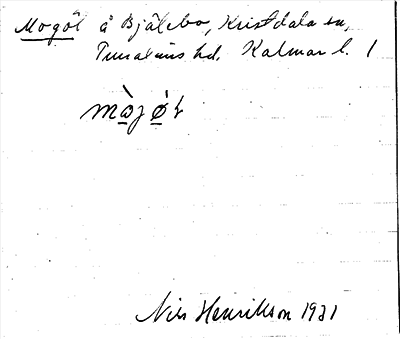 Mogöl å Bjälebo, Kristdala sn,
Tunaläns hd. Kalmar l. 1
Nils Henrikson 1931